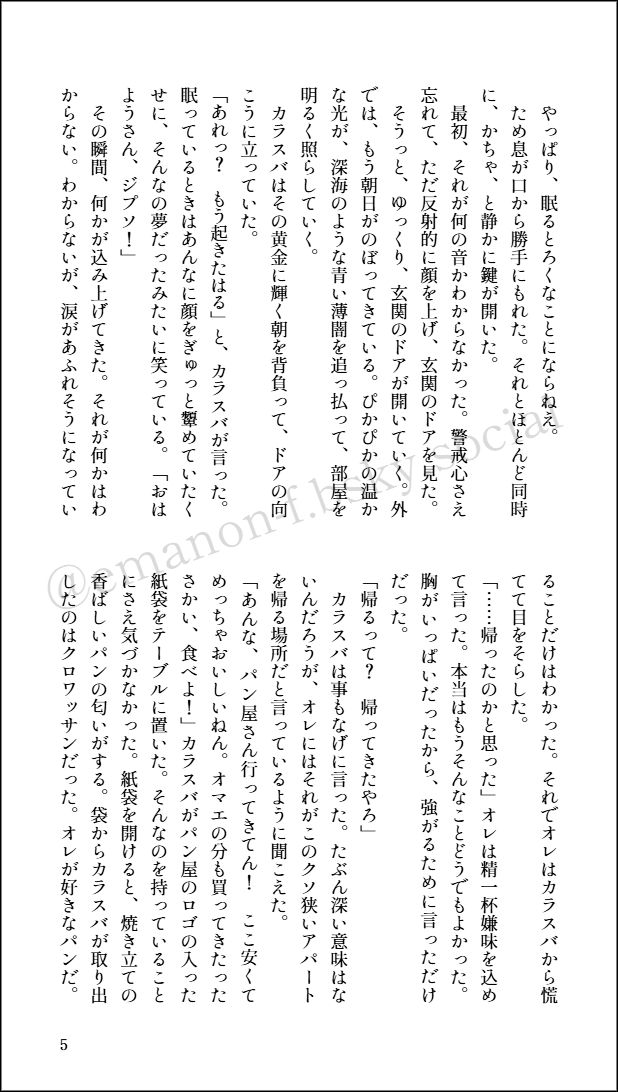 やっぱり、眠るとろくなことにならねえ。
ため息が口から勝手にもれた。それとほとんど同時
に、かちゃ、と静かに鍵が開いた。
最初、それが何の音かわからなかった。警戒心さえ
忘れて、ただ反射的に顔を上げ、玄関のドアを見た。
そうっと、ゆっくり、玄関のドアが開いていく。外
では、もう朝日がのぼってきている。ぴかぴかの温か
な光が、深海のような青い薄闇を追っ払って、部屋を
明るく照らしていく。
カラスバはその黄金に輝く朝を背負って、ドアの向
こうに立っていた。
「あれっ？　もう起きたはる」と、カラスバが言った。
眠っているときはあんなに顔をぎゅっと顰めていたく
せに、そんなの夢だったみたいに笑っている。「おは
ようさん、ジプソ！」
その瞬間、何かが込み上げてきた。それが何かはわ
からない。わからないが、涙があふれそうになってい
ることだけはわかった。それでオレはカラスバから慌
てて目をそらした。
「……帰ったのかと思った」オレは精一杯嫌味を込め
て言った。本当はもうそんなことどうでもよかった。
胸がいっぱいだったから、強がるために言っただけ
だった。
「帰るって？　帰ってきたやろ」
カラスバは事もなげに言った。たぶん深い意味はな
いんだろうが、オレにはそれがこのクソ狭いアパート
を帰る場所だと言っているように聞こえた。
「あんな、パン屋さん行ってきてん！　ここ安くて
めっちゃおいしいねん。オマエの分も買ってきたった
さかい、食べよ！」カラスバがパン屋のロゴの入った
紙袋をテーブルに置いた。そんなのを持っていること
にさえ気づかなかった。紙袋を開けると、焼き立ての
香ばしいパンの匂いがする。袋からカラスバが取り出
したのはクロワッサンだった。オレが好きなパンだ。
5
@emanon-f.bsky.social